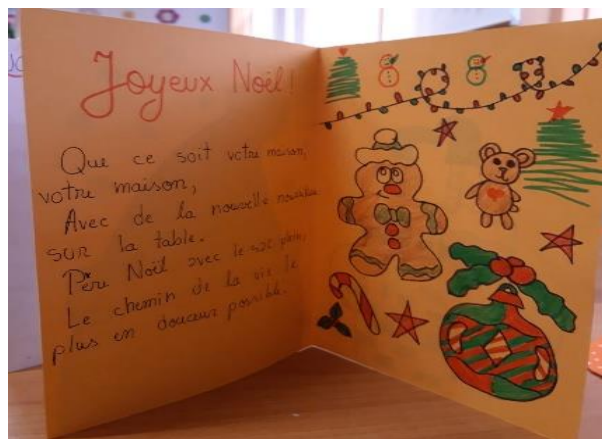 Joyeux Noël!
Que ce soit votre maison,
votre maison,
Avec de la nouvelle
sur la table.
Père Noël avec le sac plein,
Le chemin de la vie le
plus en douceur possible.